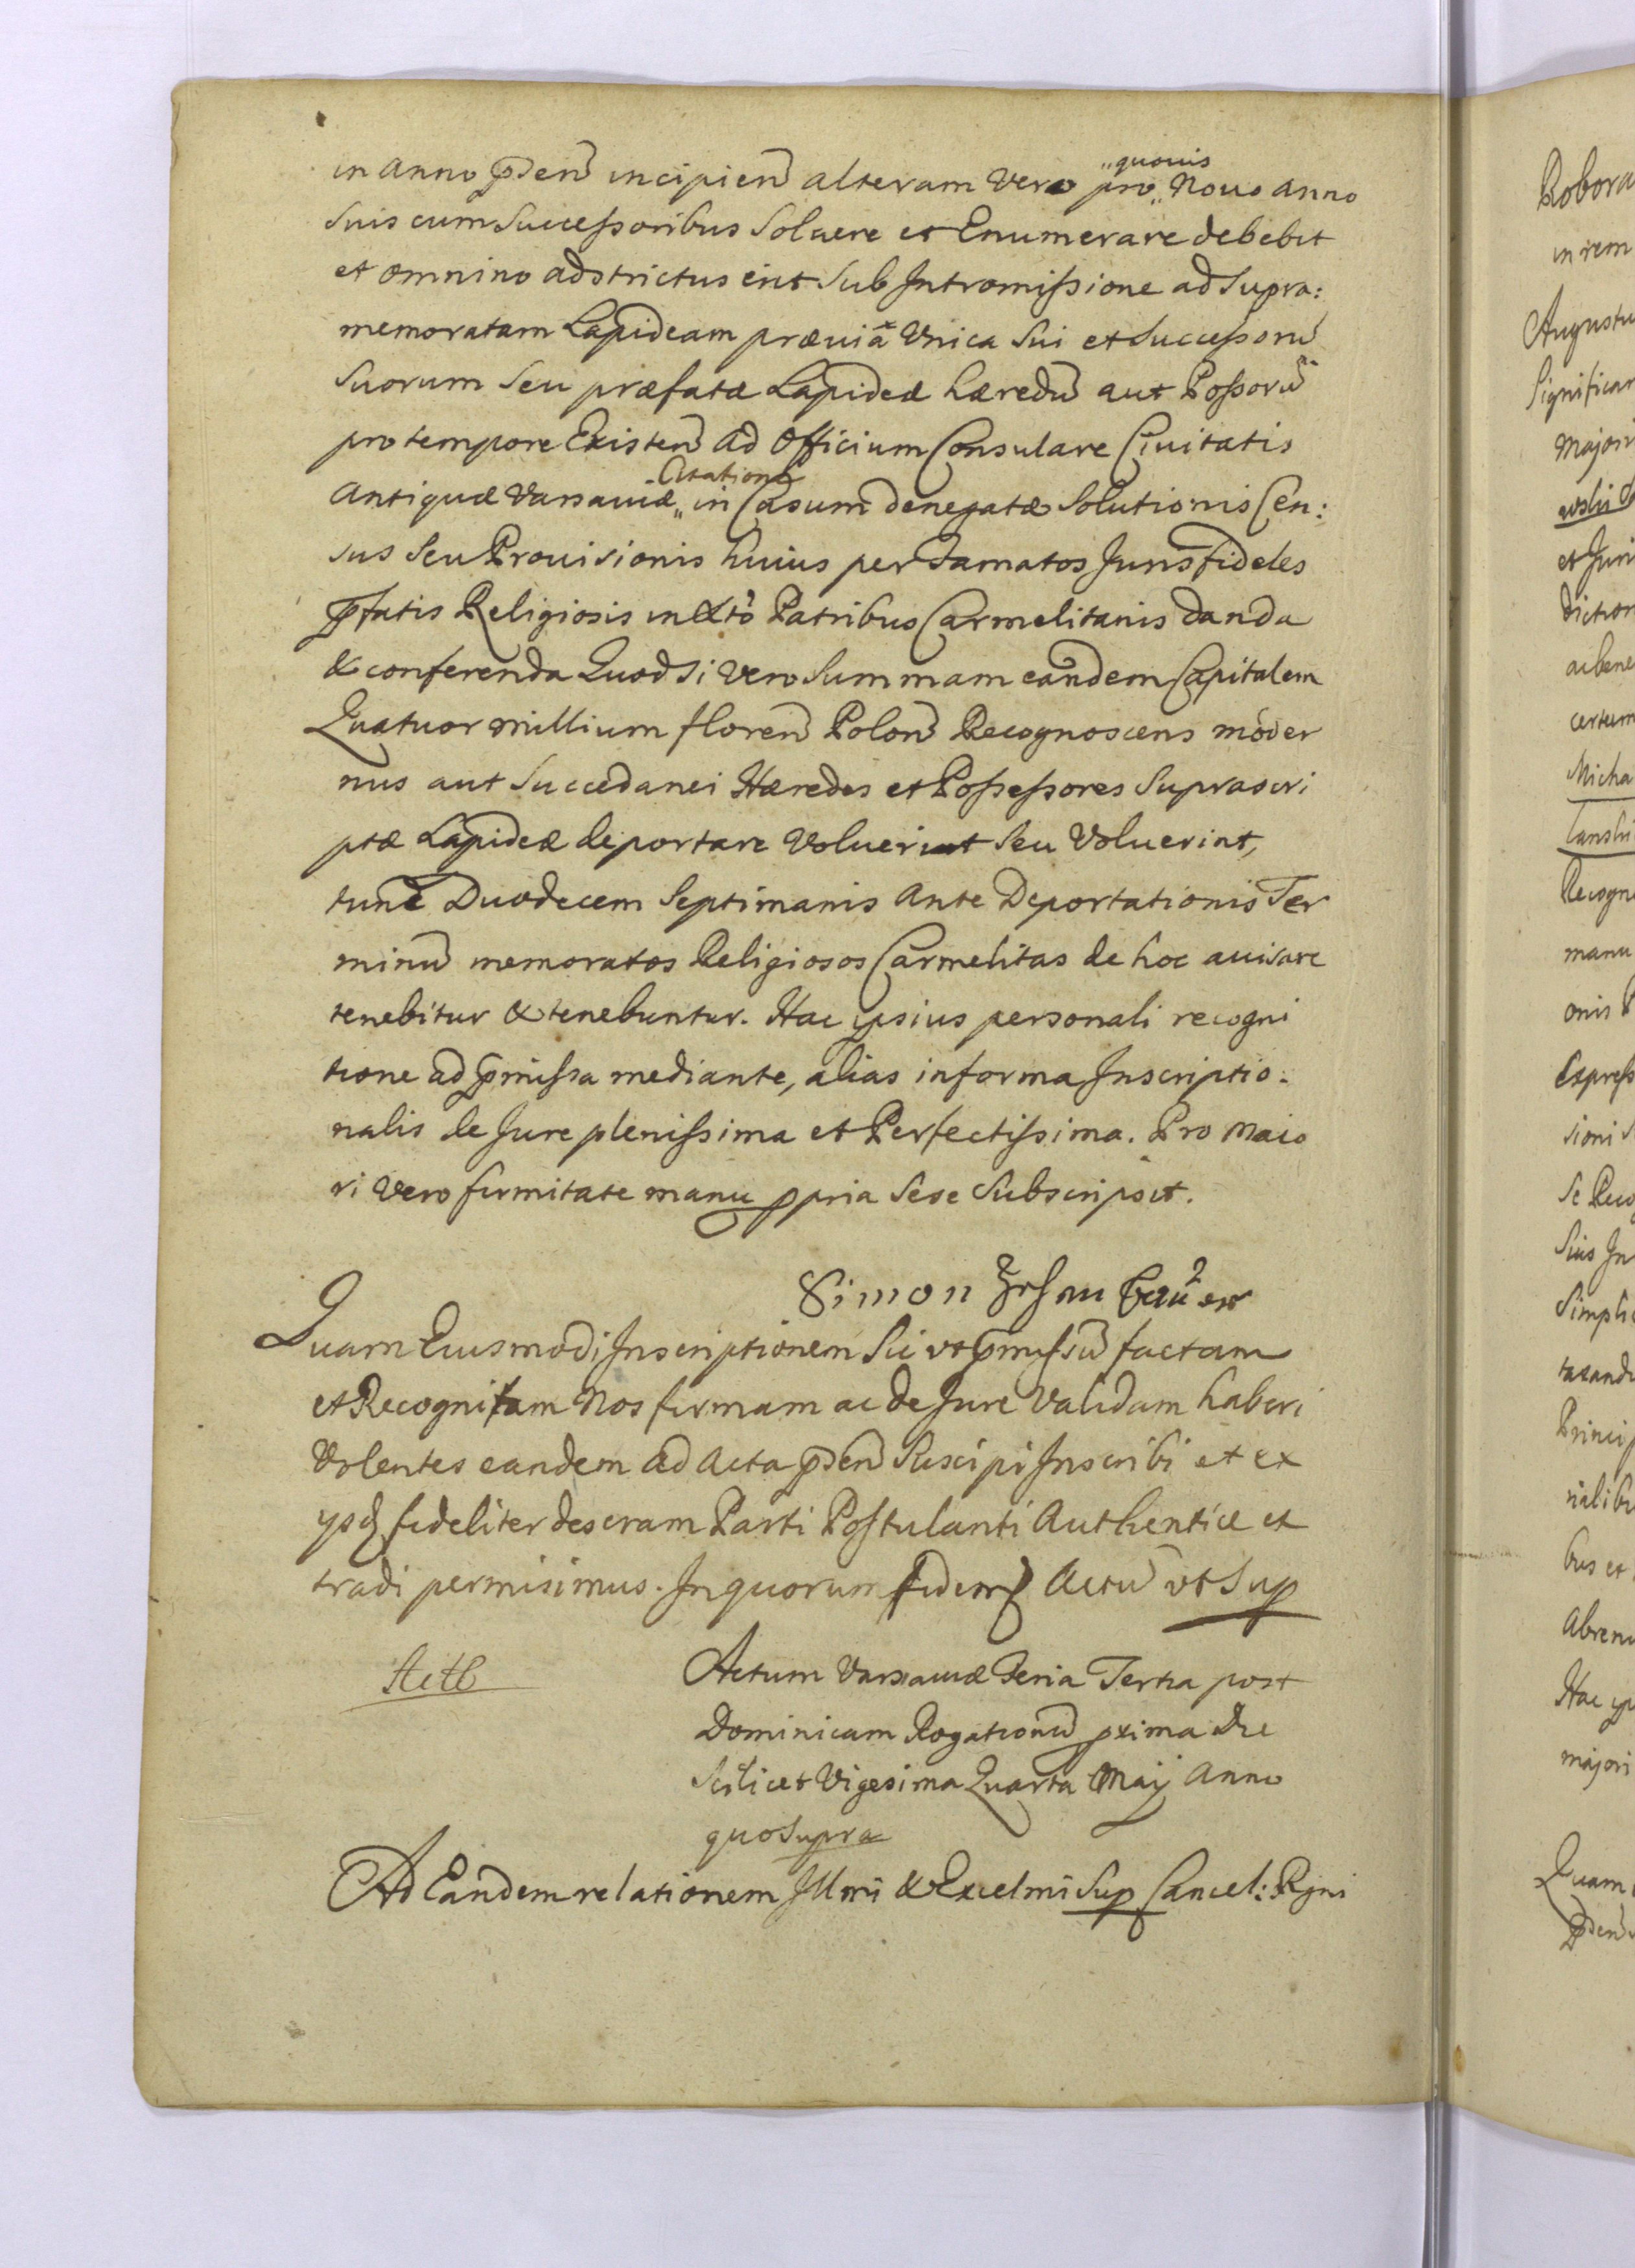 in anno p̄sen̄ incipien̄ alteram Vero pro „quouis„ Nouo anno
suis cum Successoribus Soluere et Enumerare debebit
et omnino adstrictus erit Sub Intromissione ad Supra:
memoratam Lapideam præuiã Vnica Sui et Successorū
Suorum Seu præfatæ Lapideæ hæredū aut Possorū
pro tempore Existen̄ ad Officium Consulare Ciuitatis
Antiquæ Varsauiæ „Citatione in Casum denegatæ Solutionis Cen:
sus Seu Prouisionis huius per Jamatos Juris fideles
p̄fatis Religiosis Patribus Carmelitanis danda
& conferenda Quod si vero Summam eandem Capitalem
Quatuor millium floren̄ Polon̄ Recognoscens moder
nus aut Succedanei Hæredes et Possessores Suprascri
ptæ Lapideæ deportare Voluerit Seu Voluerint,
tunc Duodecem Septimanis Ante Deportationis Ter
minū memoratos Religiosos Carmelitas de hoc auisare
tenebitur & tenebuntur. Hac ipsius personali recogni
tione ad p̄missa mediante, alias in forma Inscriptio:
nalis de Jure plenissima et Perfectissima. Pro Maio
ri Vero firmitate manu ppria Sese Subscripsit.
Simon
Quam Eiusmodi Inscriptionem Sic vt p̄missū factam
et Recognitam Nos firmam ac de Jure Validam haberi
Volentes eandem ad Acta p̄sen̄ Suscipi Inscribi et ex
ysdꝫ fideliter descram Parti Postulanti Authentice et
tradi permisimus. In quorum fidem Actū vt Sup
Actum Varsauiæ Feria Tertia post
Dominicam Rogationū pxima die
Scilicet Vigesima Quarta Maij Anno
quo Supra
Ad Eandem relationem Illmi & Excelmi Sup Cancel: Rgni
Robora
in rem
Augustu
Significan
Majori
et Juri
diction
certum
Micha
Recogn
manu
onis
Express
sioni
Se Reco
Suis In
Simplic
Princip
bus et
Abrenu
Hac yp
majori
Quam
p̄sen̄